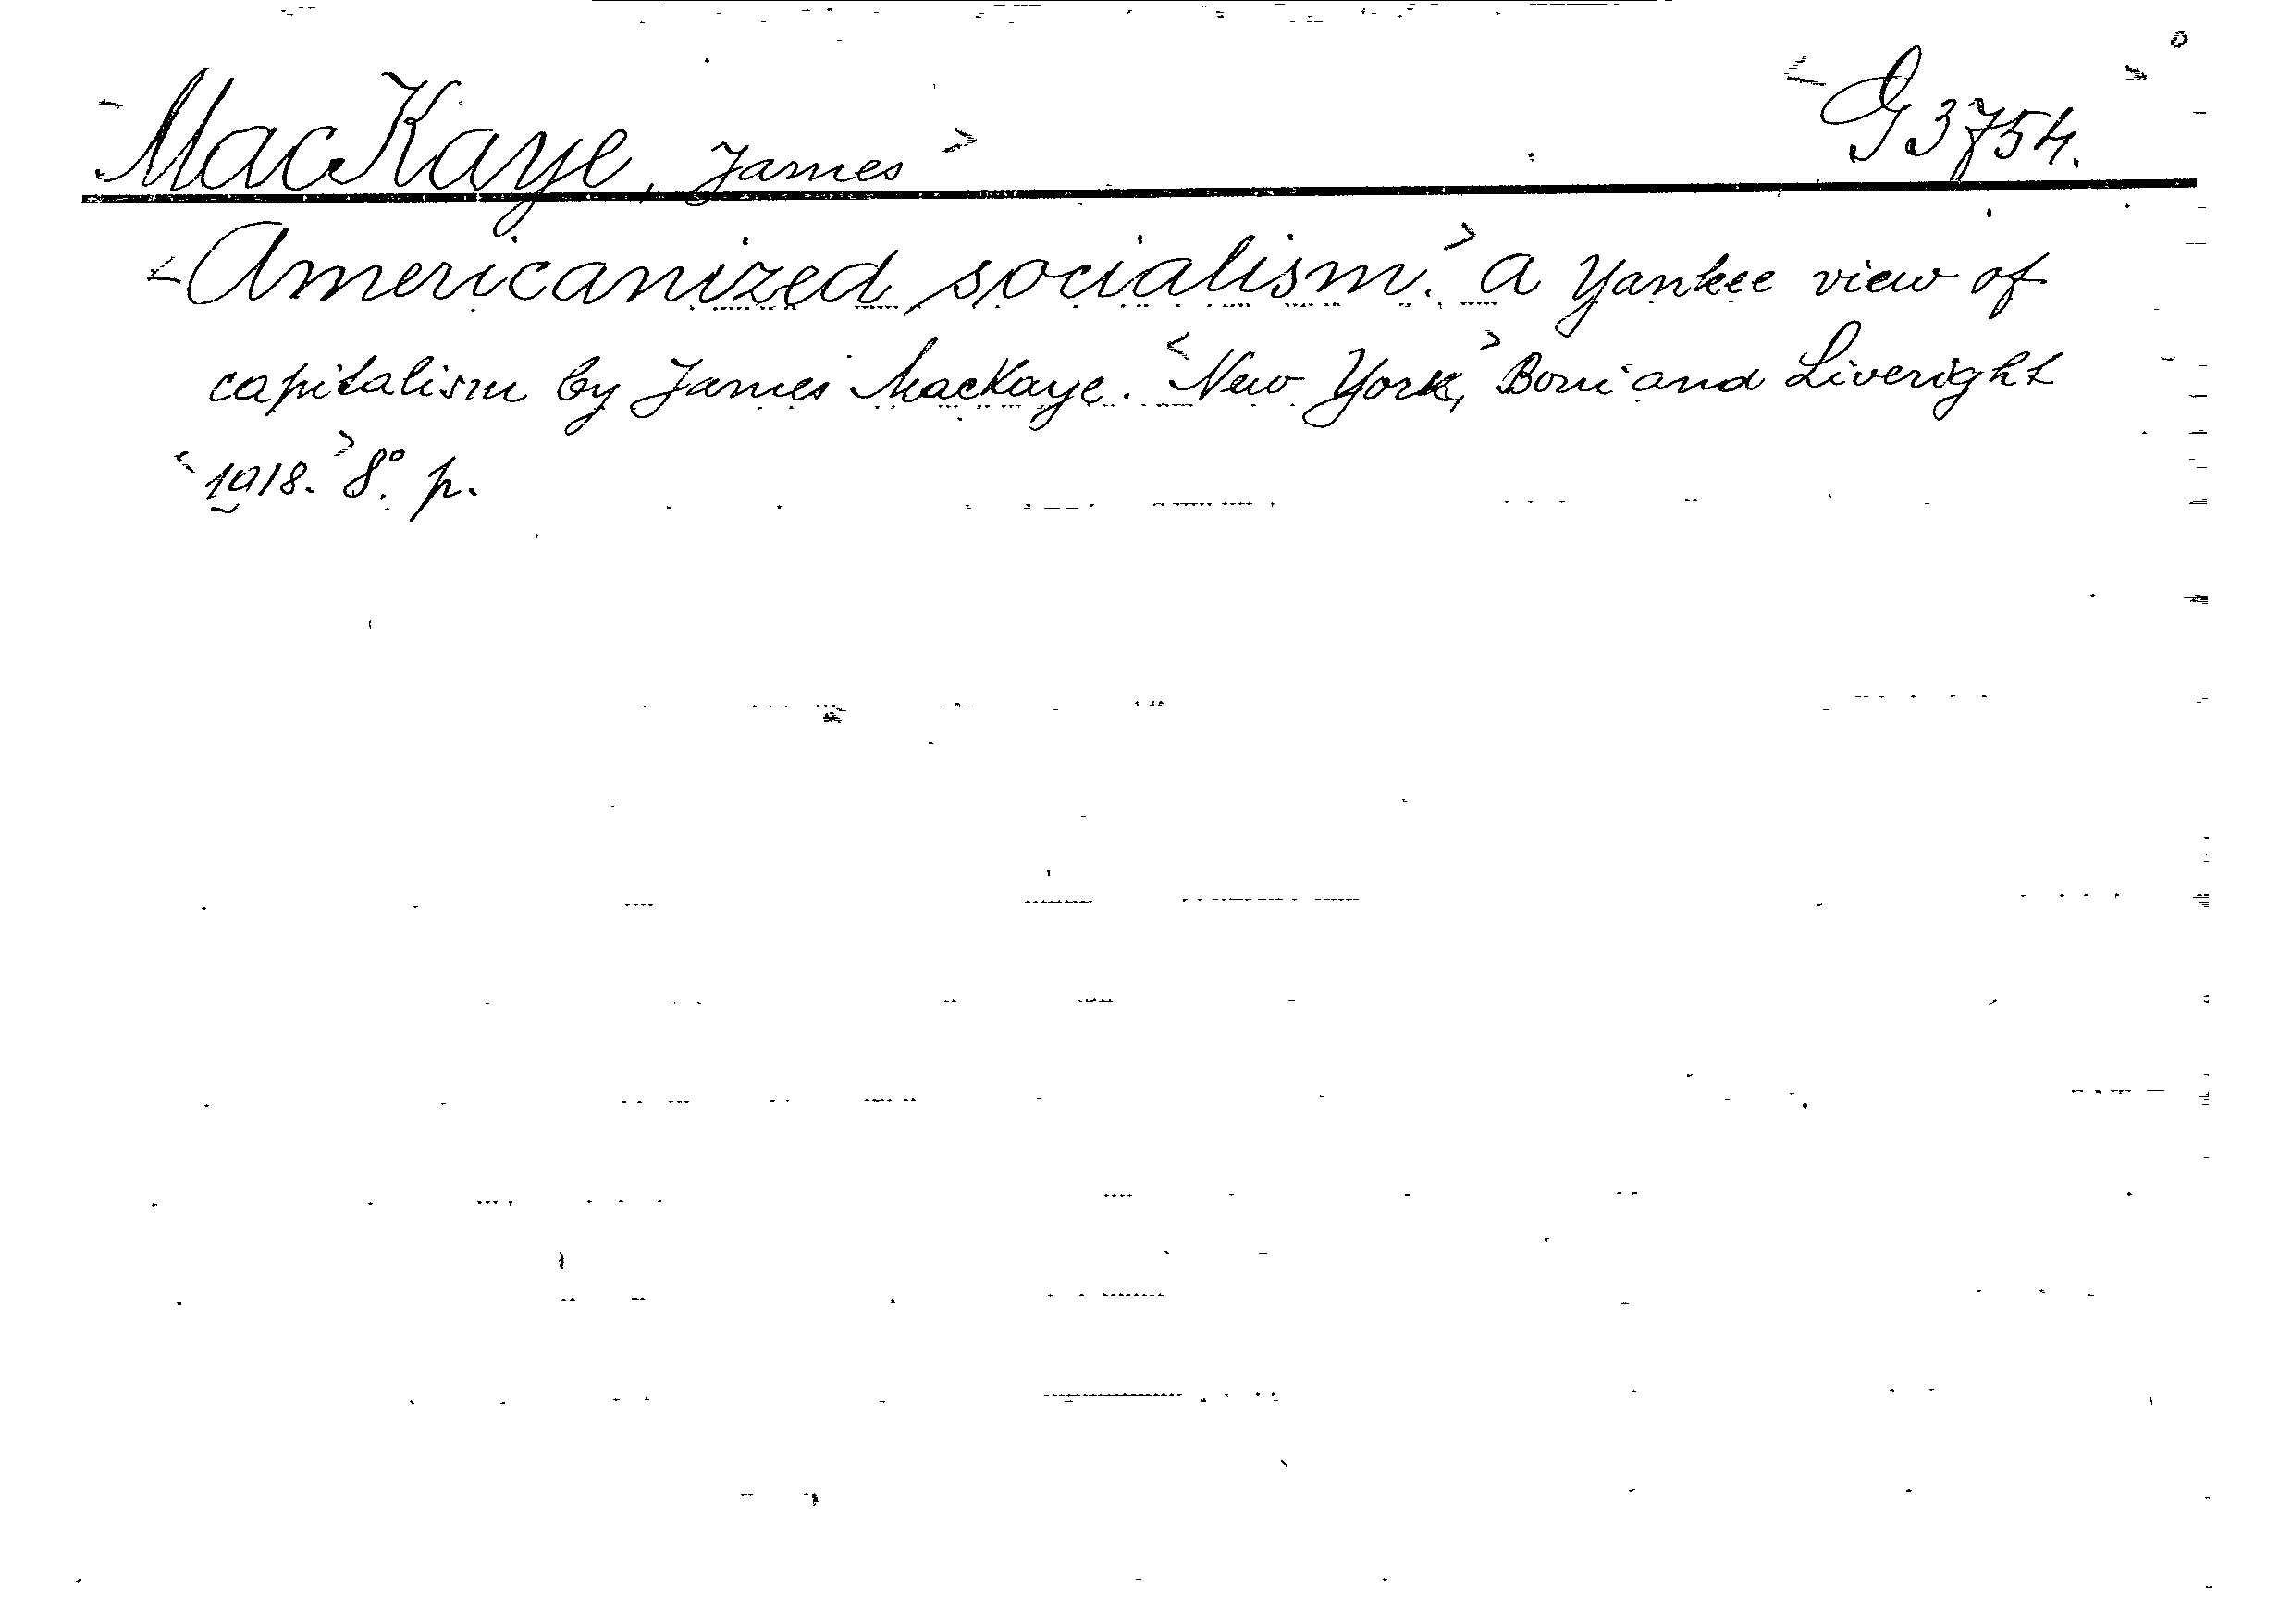 <MacKaye, James> <G 3754.>
<Americanized socialism.> A Yankee view of
capitalism by James MacKaye. <New York,> Boni and Liveright
<1918.> 8°. p.